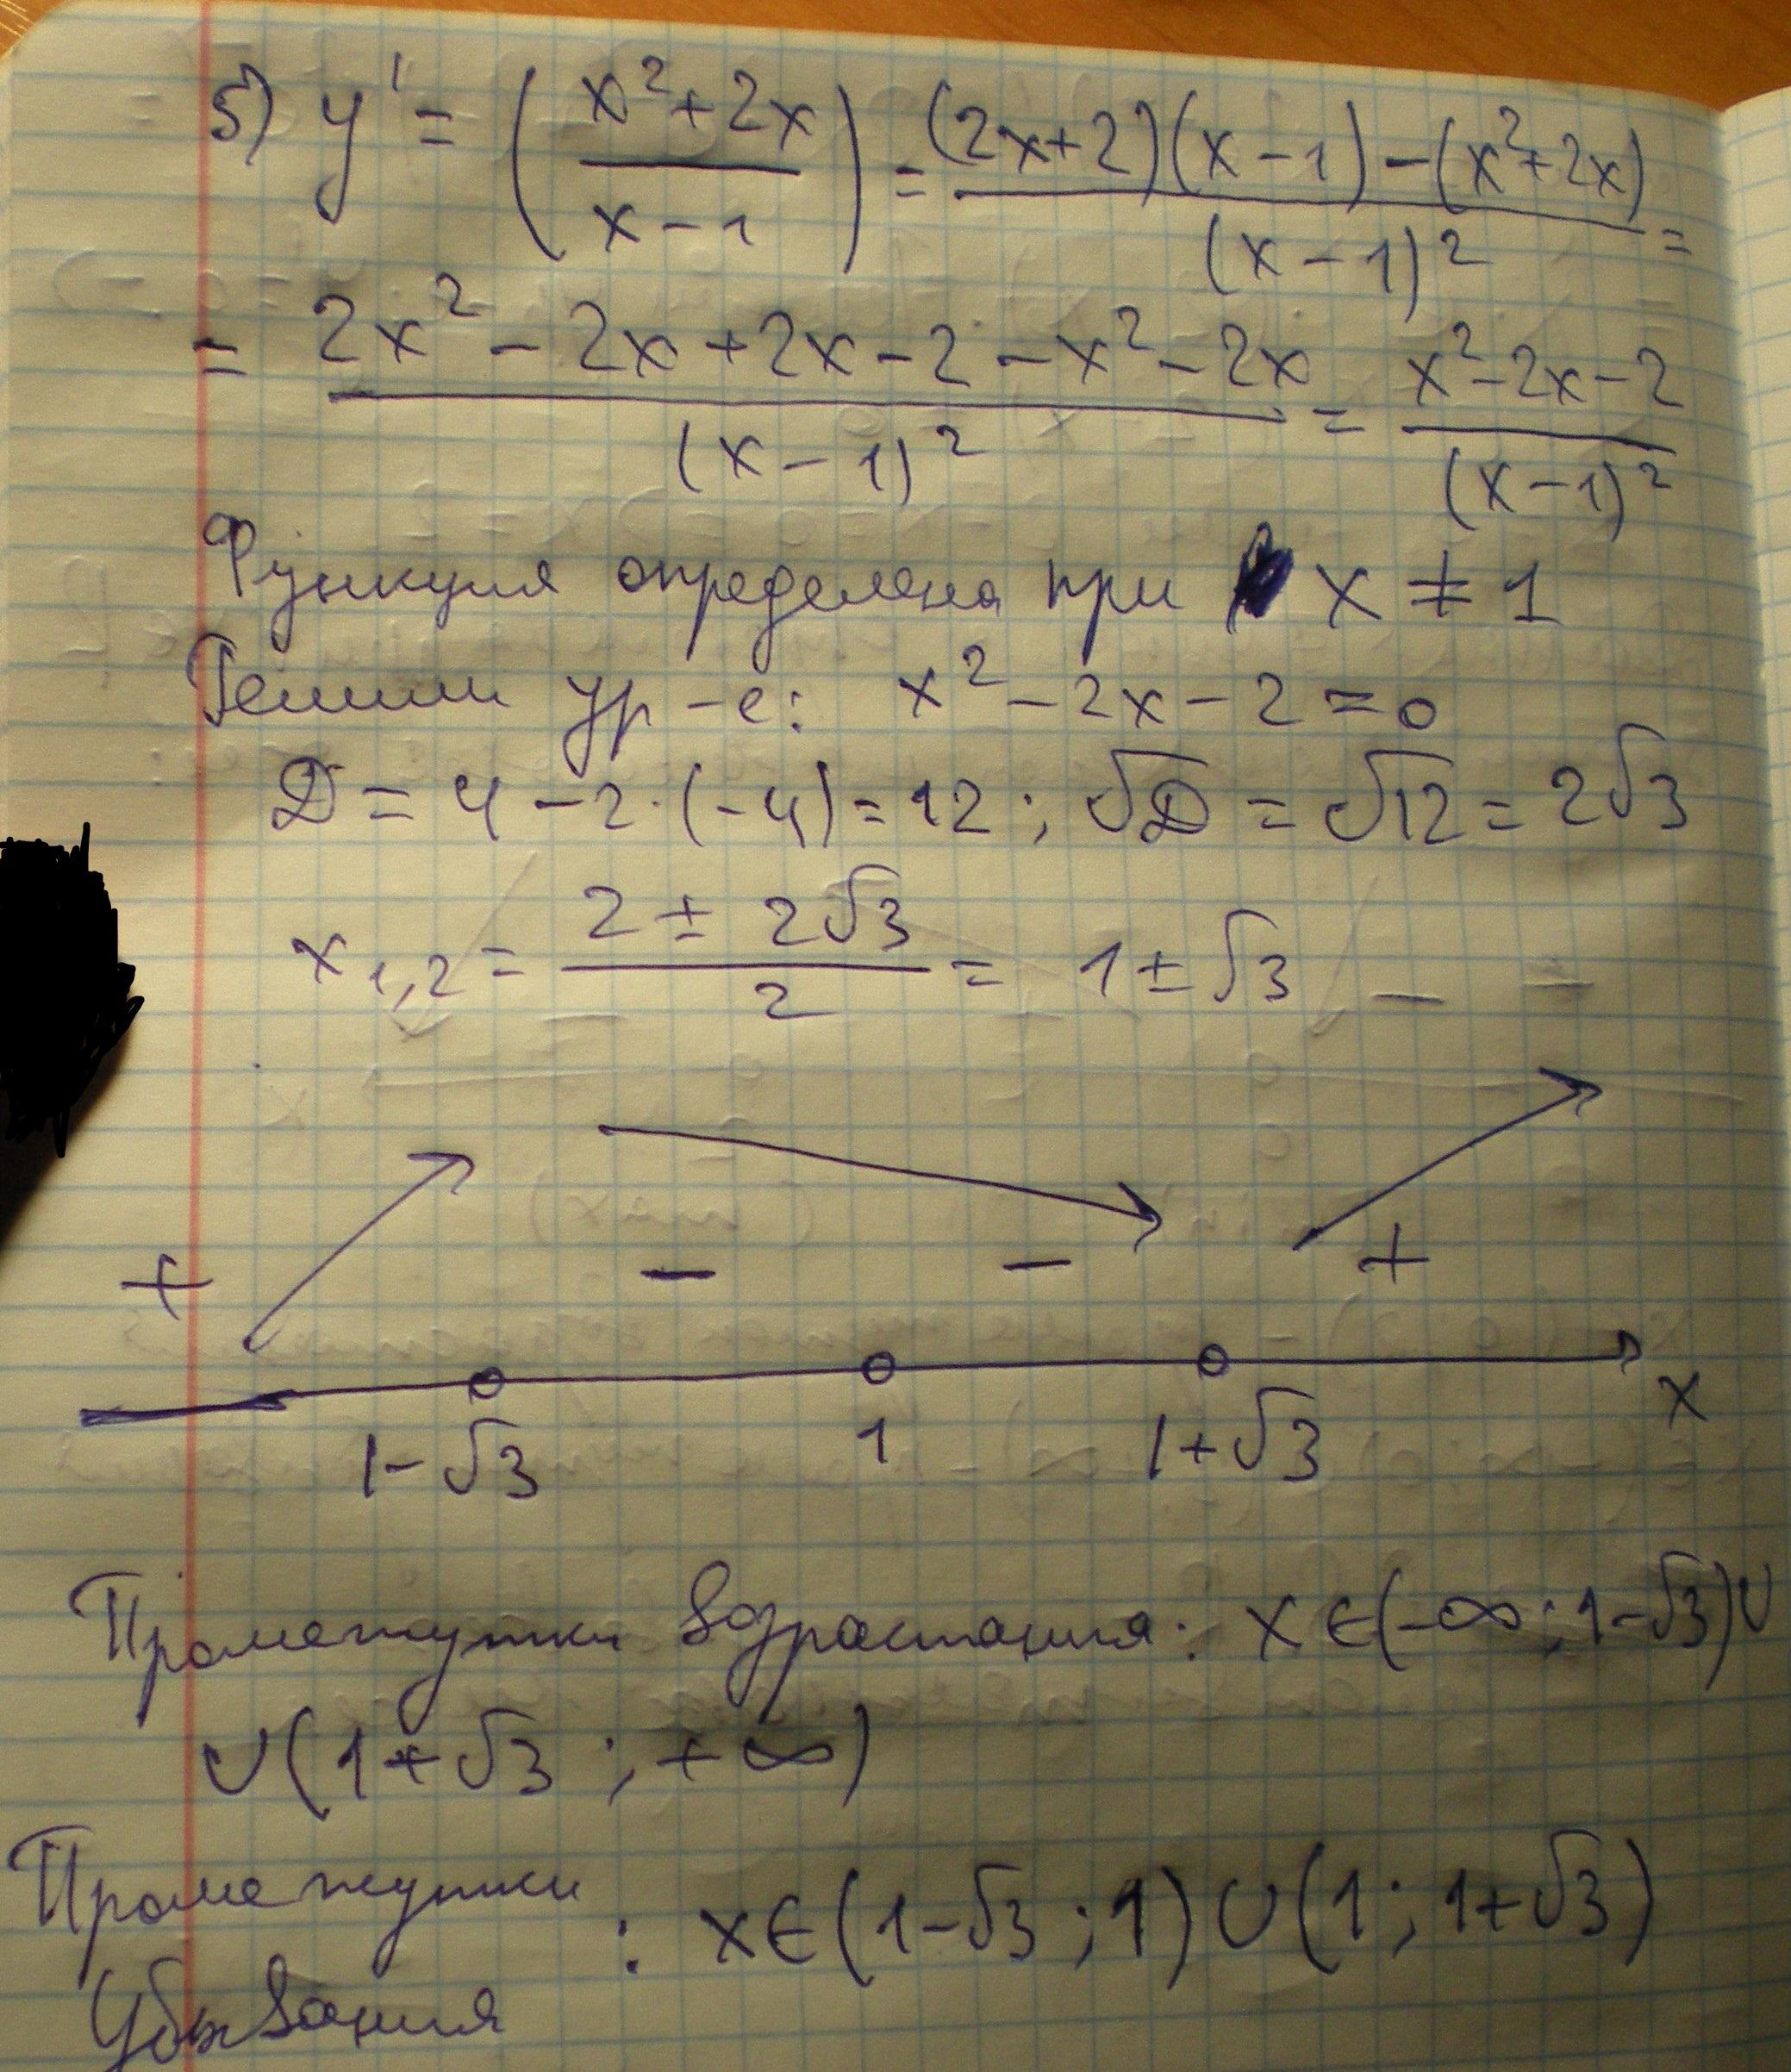 5) y' = ( (x²+2x)/(x-1) ) = ((2x+2)(x-1)-(x²+2x))/(x-1)² =
= (2x²-2x+2x-2-x²-2x)/(x-1)² = (x²-2x-2)/(x-1)²
Функция определена при x ≠ 1
Решим ур-е: x²-2x-2=0
D = 4-2·(-4)=12; √D = √12 = 2√3
x₁,₂ = (2 ± 2√3)/2 = 1±√3
+ - - +
1-√3 1 1+√3 x
Промежутки возрастания: x∈(-∞;1-√3)∪
∪(1+√3;+∞)
Промежутки : x∈(1-√3;1)∪(1;1+√3)
убывания